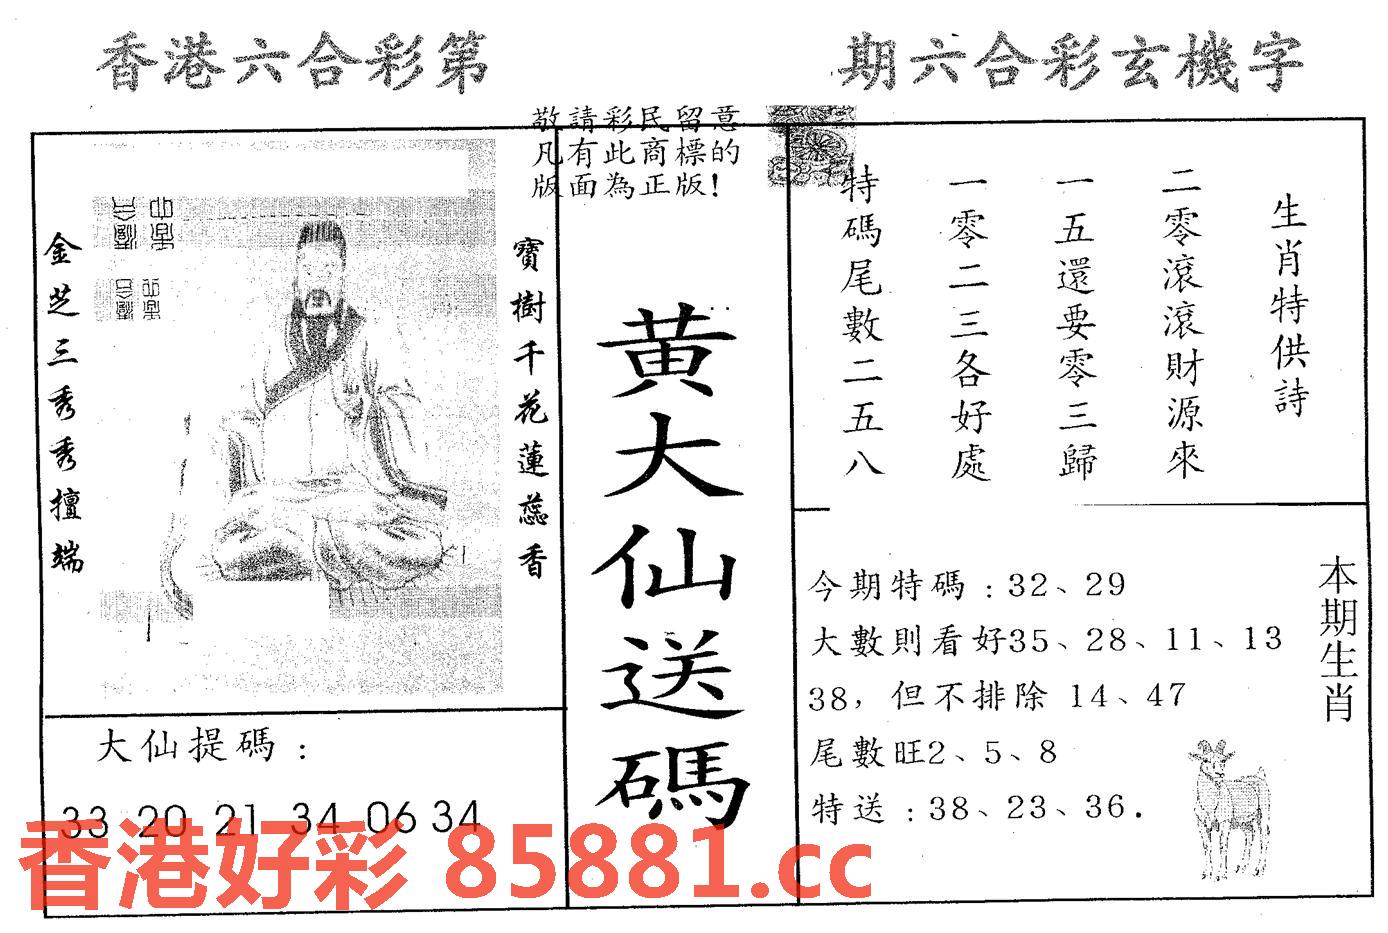 香港六合彩第
期六合彩玄機字
敬請彩民留意
凡有此商標的
版面為正版!
寶樹千花蓮蕊香
金芝三秀秀擅端
大仙提碼:
33 20 21 34 06 34
黄大仙送碼
生肖特供詩
二零滾滾財源來
一五還要零三歸
一零二三各好處
特碼尾數二五八
本期生肖
今期特碼:32、29
大數則看好35、28、11、13
38，但不排除 14、47
尾數旺2、5、8
特送:38、23、36.
香港好彩 85881.cc